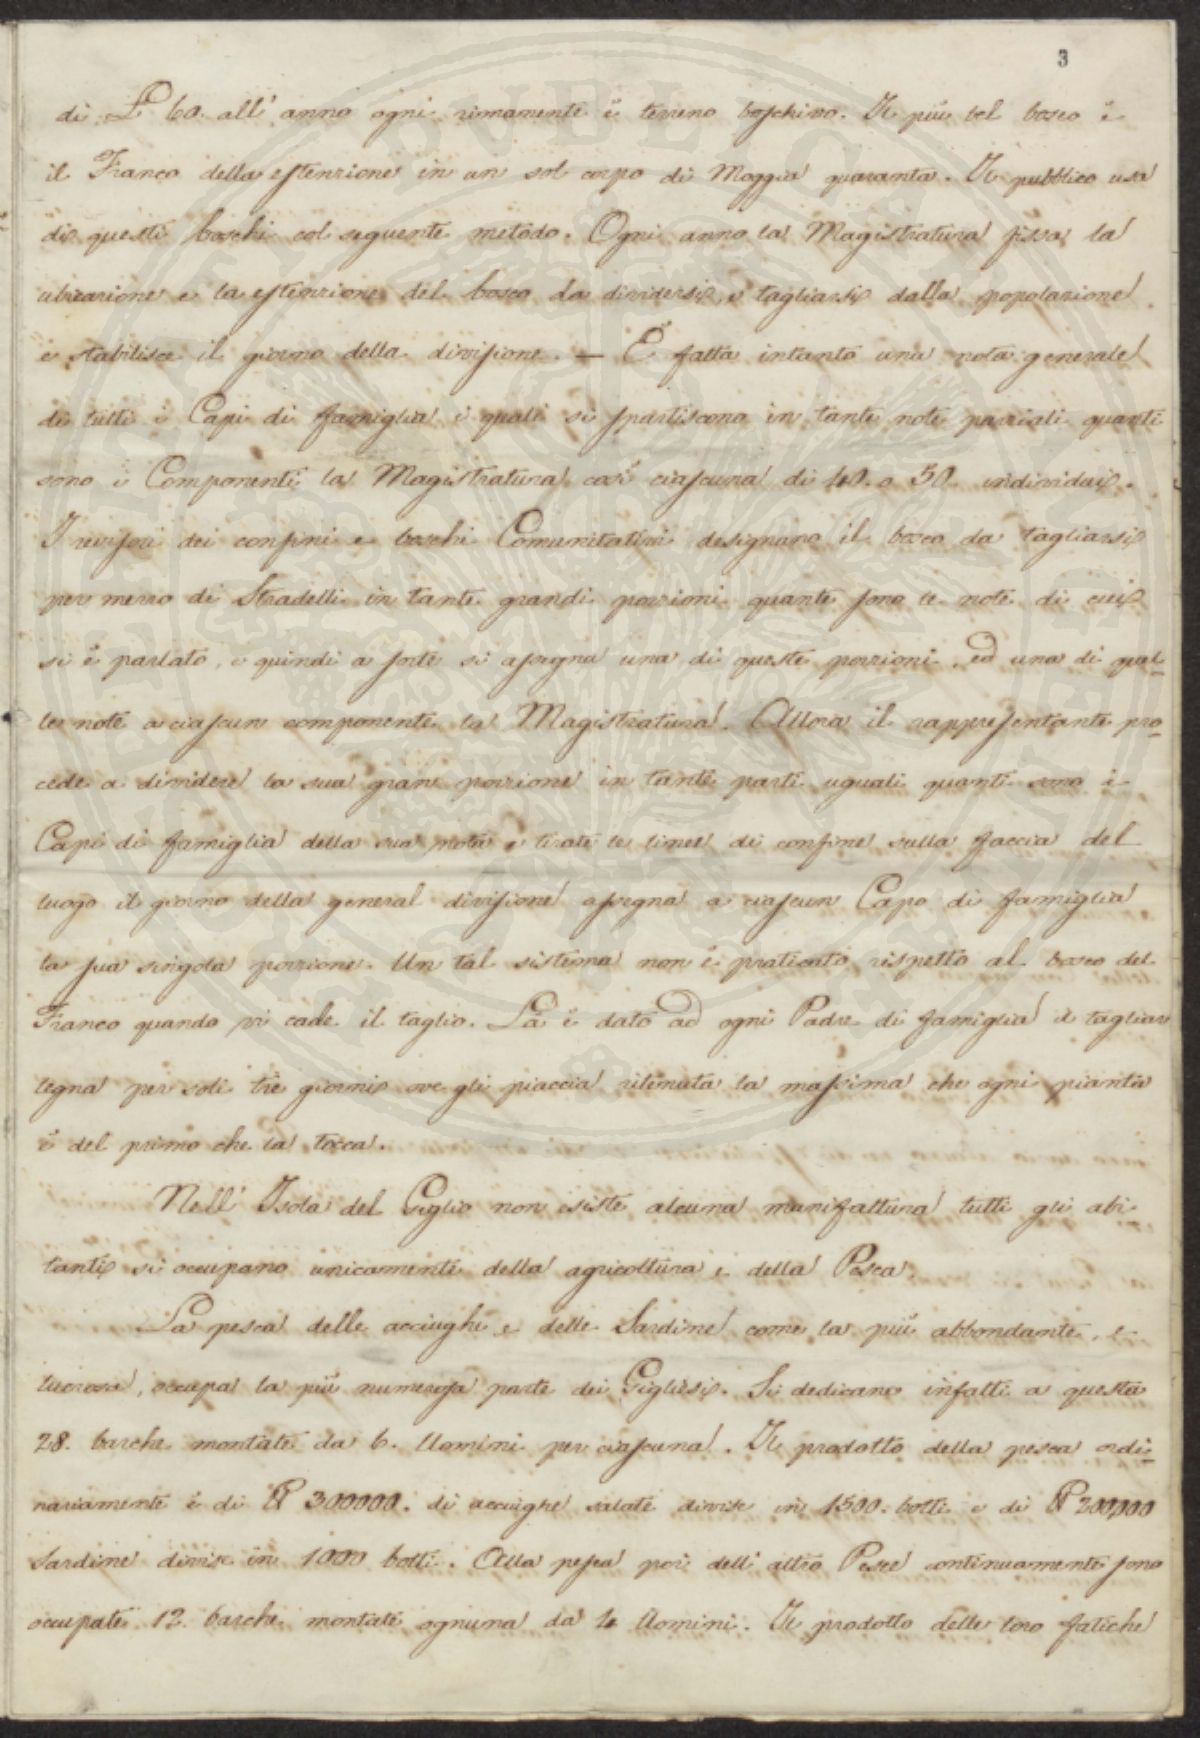 3
di £ 60. all' anno ogni rimanente è terreno boschivo. Il più bel bosco è
il Franco della estenzione in un sol corpo di Moggia quaranta. Il pubblico usa
di questi boschi col seguente metodo. Ogni anno la Magistratura fissa la
ubicazione e la estenzione del bosco da dividersi, e tagliarsi dalla popolazione
e stabilisce il giorno della divisione. — È fatta intanto una nota generale
di tutti i Capi di famiglia i quali si spartiscono in tante note parziali quanti
sono i Componenti la Magistratura così ciascuna di 40. o 50. individui.
I revisori dei confini e boschi Comunitativi designano il bosco da tagliarsi
per mezzo di Stradelli in tante grandi porzioni quante sono le note di cui
si è parlato, e quindi a sorte si assegna una di queste porzioni, ed una di quel-
le note a ciascun componente la Magistratura. Allora il rappresentante pro-
cede a dividere la sua gran porzione in tante parti uguali quanti sono i
Capi di famiglia della sua nota e tirate le linee di confine sulla faccia del
luogo il giorno della general divisione assegna a ciascun Capo di famiglia
la sua singola porzione. Un tal sistema non è praticato rispetto al bosco del
Franco quando vi cade il taglio. Là è dato ad ogni Padre di famiglia di tagliar
legna per soli tre giorni ove gli piaccia ritenuta la massima che ogni pianta
è del primo che la tocca.
Nell' Isola del Giglio non esiste alcuna manifattura tutti gli abi
tanti si occupano unicamente della agricoltura e della Pesca.
La pesca delle acciughe e delle Sardine come la più abbondante, e
lucrosa, occupa la più numerosa parte dei Gigliesi. Si dedicano infatti a questa
28. barche montate da 6. Uomini per ciascuna. Il prodotto della pesca ordi-
nariamente è di ℔ 300000. di acciughe salate divise in 1500. botti e di ℔ 200,000
Sardine divise in 1000 botti. Alla pesca poi delli altro Pesce continuamente sono
occupate 12. barche montate ognuna da 4 Uomini. Il prodotto delle loro fatiche